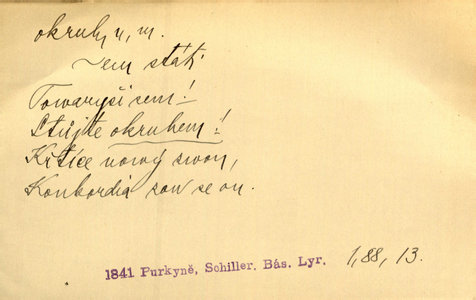 okruh, u, m.
Sem stát'
Towaryši sem!
Stůjte okruhem!
Křtíce nowý zwon,
Konkordia zow se on.
1841 Purkyně, Schiller. Bás. Lyr. 1, 88, 13.